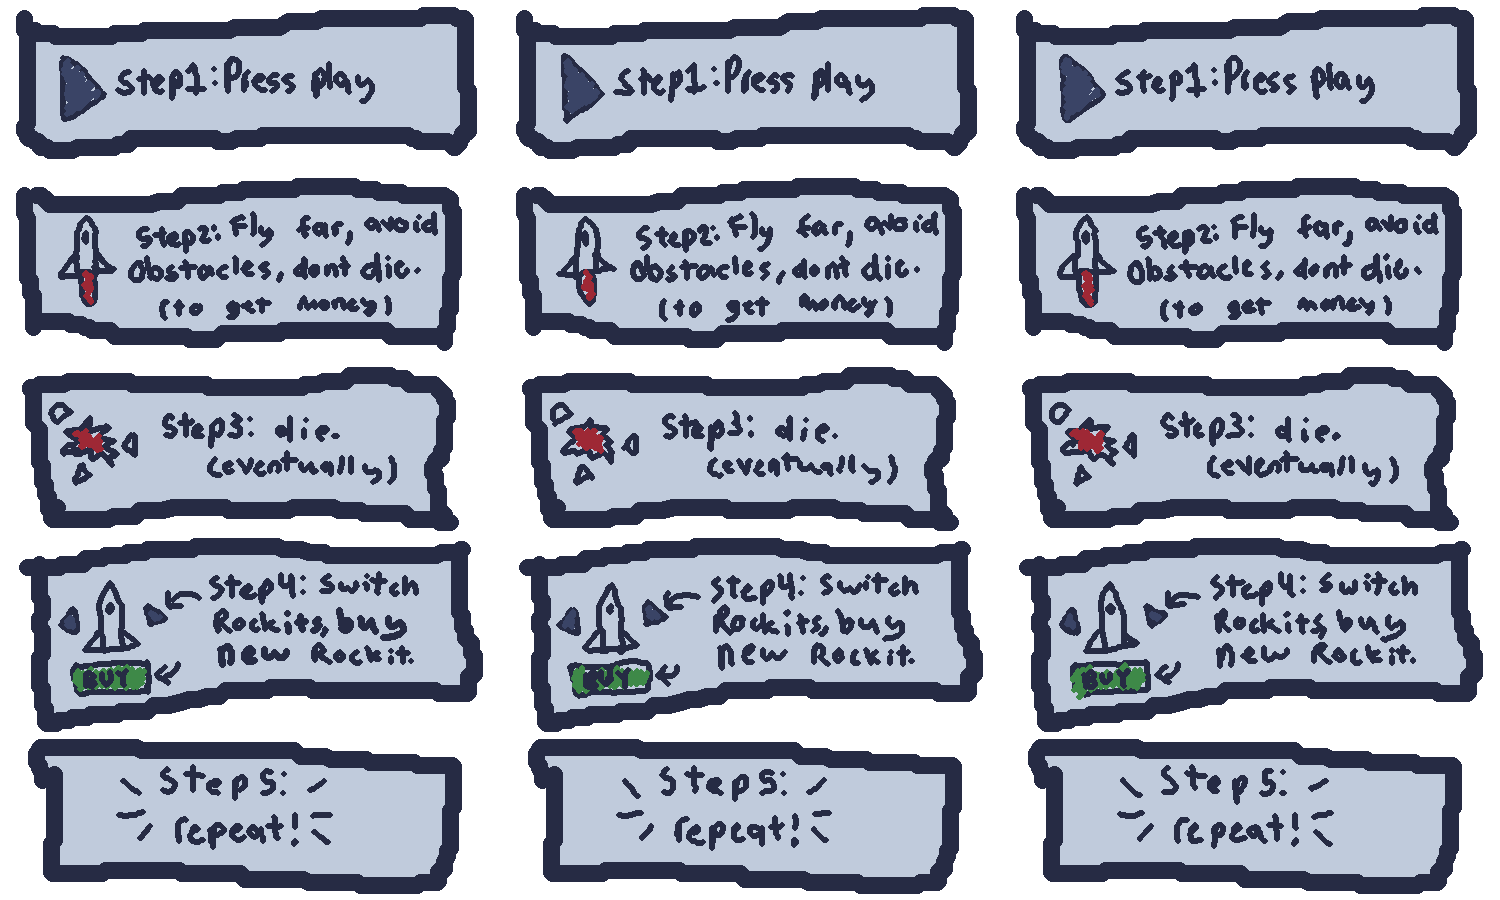 Step1: Press play
Step2: Fly far, avoid
Obstacles, dont die.
(to get money)
Step3: die.
(eventually)
Step4: Switch
Rockits, buy
new Rockit.
BUY
Step5:
repeat!
Step1: Press play
Step2: Fly far, avoid
Obstacles, dont die.
(to get money)
Step3: die.
(eventually)
Step4: Switch
Rockits, buy
new Rockit.
BUY
Step5:
repeat!
Step1: Press play
Step2: Fly far, avoid
Obstacles, dont die.
(to get money)
Step3: die.
(eventually)
Step4: Switch
Rockits, buy
new Rockit.
BUY
Step5:
repeat!